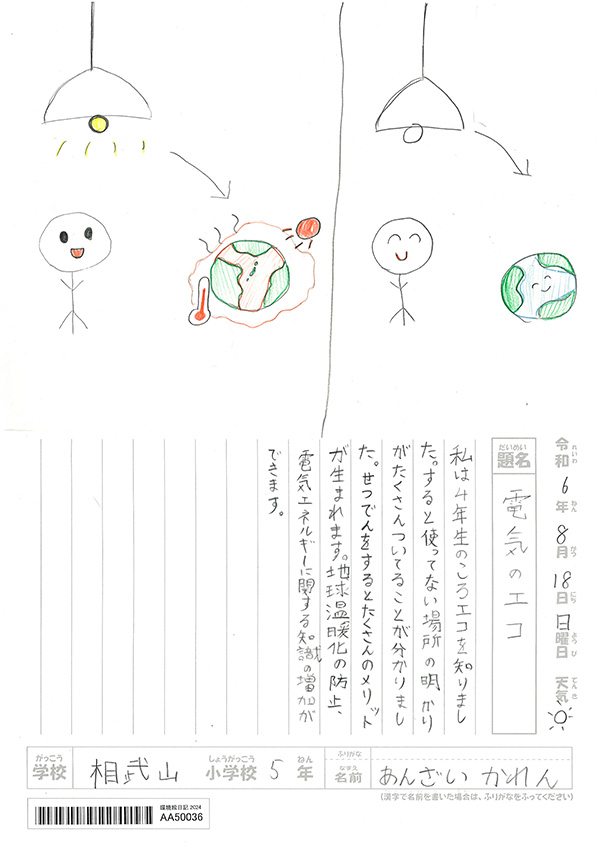 令和6年8月18日日曜日 天気
れいわ ねん がつ にち ようび てんき
だいめい
題名 電気のエコ
私は4年生のころエコを知りまし
た。すると使ってない場所の明かり
がたくさんついてることが分かりまし
た。せつでんをするとたくさんのメリット
が生まれます。地球温暖化の防止、
電気エネルギーに関する知識の増加が
できます。
がっこう しょうがっこう ねん ふりがな
学校 相武山 小学校 5年 名前 あんざい かれん
なまえ
(漢字で名前を書いた場合は、ふりがなをふってください)
環境絵日記 2024
AA50036